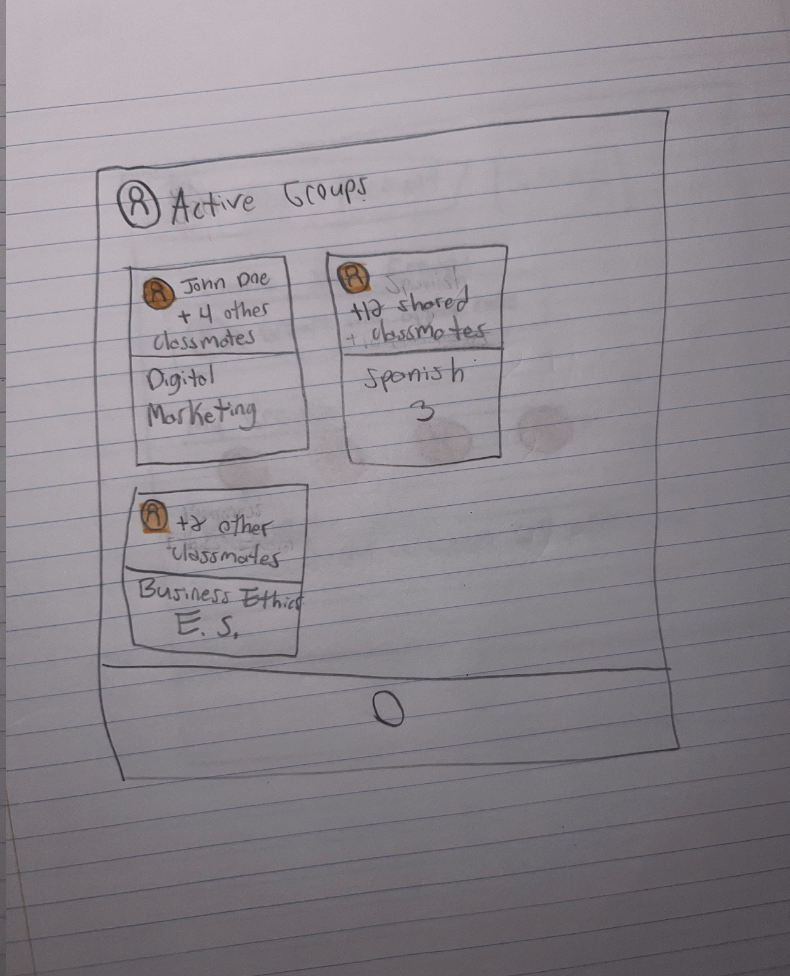 Active Groups
John Doe
+ 4 other
classmates
Digital
Marketing
+12 shared
classmates
Spanish
3
+2 other
classmates
Business Ethics
E. S.